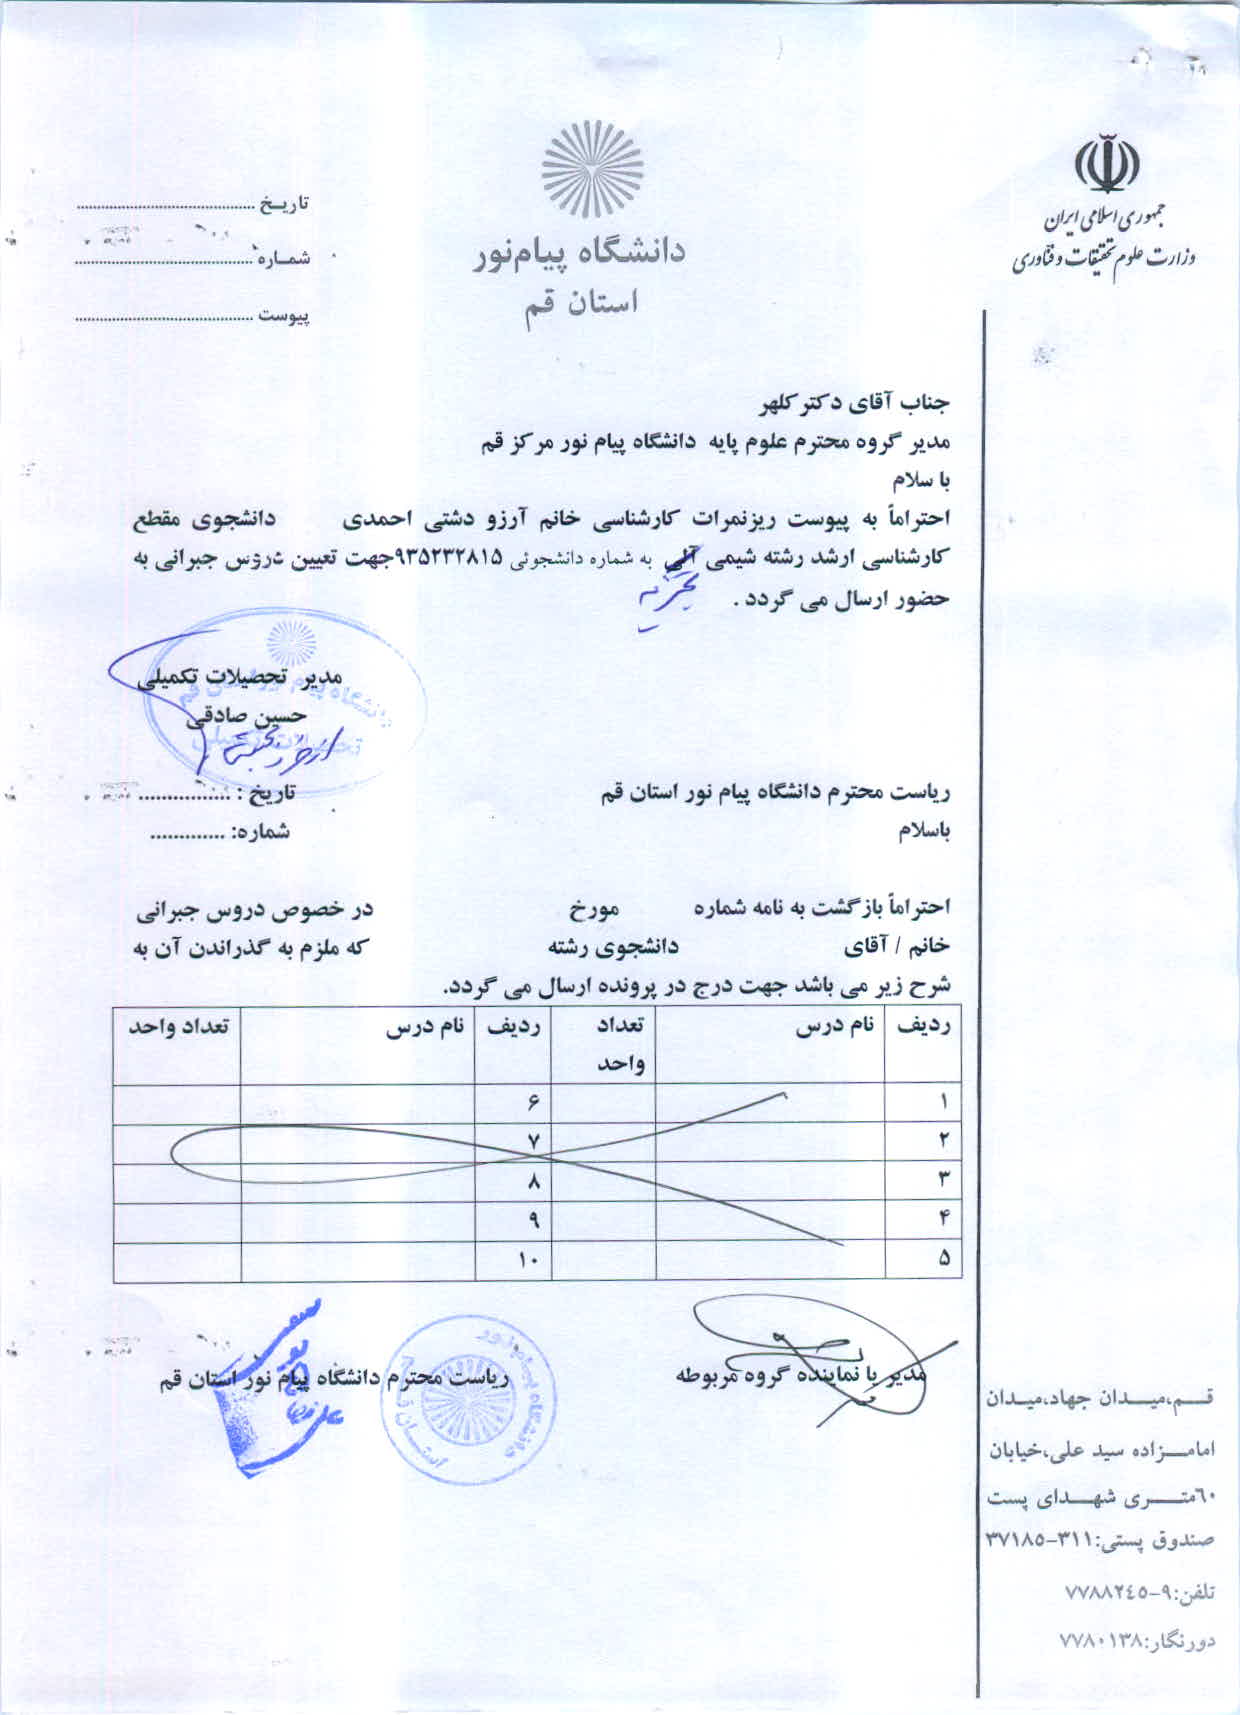 جمهوری اسلامی ایران
وزارت علوم تحقیقات و فناوری
دانشگاه پیام‌نور
استان قم
تاریـخ ......................................
شمـــاره ......................................
پیوست ......................................
جناب آقای دکتر کلهر
مدیر گروه محترم علوم پایه دانشگاه پیام نور مرکز قم
با سلام
احتراماً به پیوست ریزنمرات کارشناسی خانم آرزو دشتی احمدی دانشجوی مقطع
کارشناسی ارشد رشته شیمی آلی به شماره دانشجوئی ۹۳۵۲۳۲۸۱۵جهت تعیین دروس جبرانی به
تجزیه
حضور ارسال می گردد .
مدیر تحصیلات تکمیلی
حسین صادقی
دانشگاه پیام نور استان قم
تحصیلات تکمیلی
ریاست محترم دانشگاه پیام نور استان قم
تاریخ : ................
باسلام
شماره: .............
احتراماً بازگشت به نامه شماره مورخ در خصوص دروس جبرانی
خانم / آقای دانشجوی رشته که ملزم به گذراندن آن به
شرح زیر می باشد جهت درج در پرونده ارسال می گردد.
ردیف نام درس تعداد واحد ردیف نام درس تعداد واحد
۱ ۶
۲ ۷
۳ ۸
۴ ۹
۵ ۱۰
مدیر یا نماینده گروه مربوطه
ریاست محترم دانشگاه پیام نور استان قم
دانشگاه پیام نور
استان قم
قـــم،میـــدان جهاد،میـدان
امامـــزاده سید علی،خیابان
۶۰متـــری شهـــدای پست
صندوق پستی:۳۱۱-۳۷۱۸۵
تلفن:۹-۷۷۸۸۲٤۵
دورنگار:۷۷۸۰۱۳۸